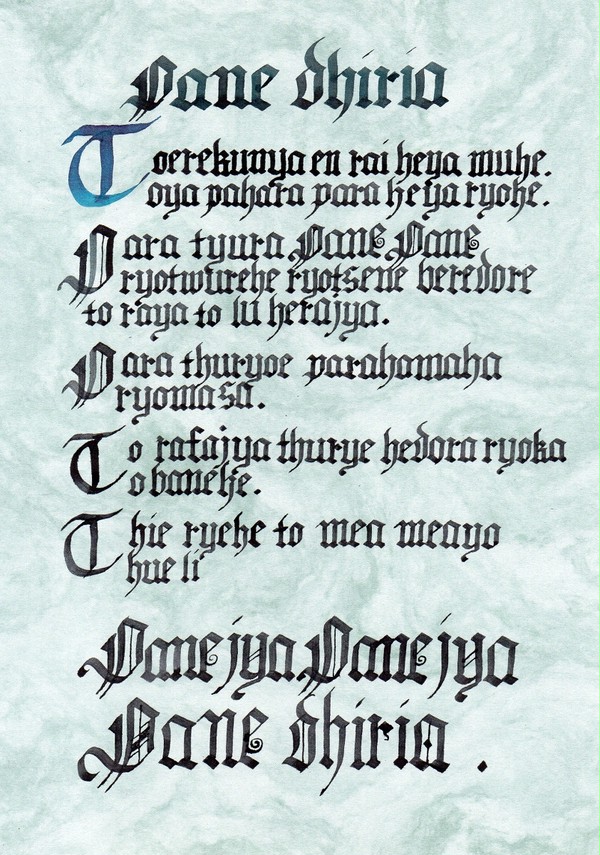 Pane dhiria
Toerekunya en rai heya muhe.
oya pahara para heya ryohe.
Para tyura Pane Pane
ryotwurehe ryotsene beredore
to raya to lu herajya.
Para thuryoe parahomaha
ryomasa.
To rafajya thurye hedora ryoka
o baneke.
Thie ryehe to mea meayo
hue li
Pane jya Pane jya
Pane dhiria.